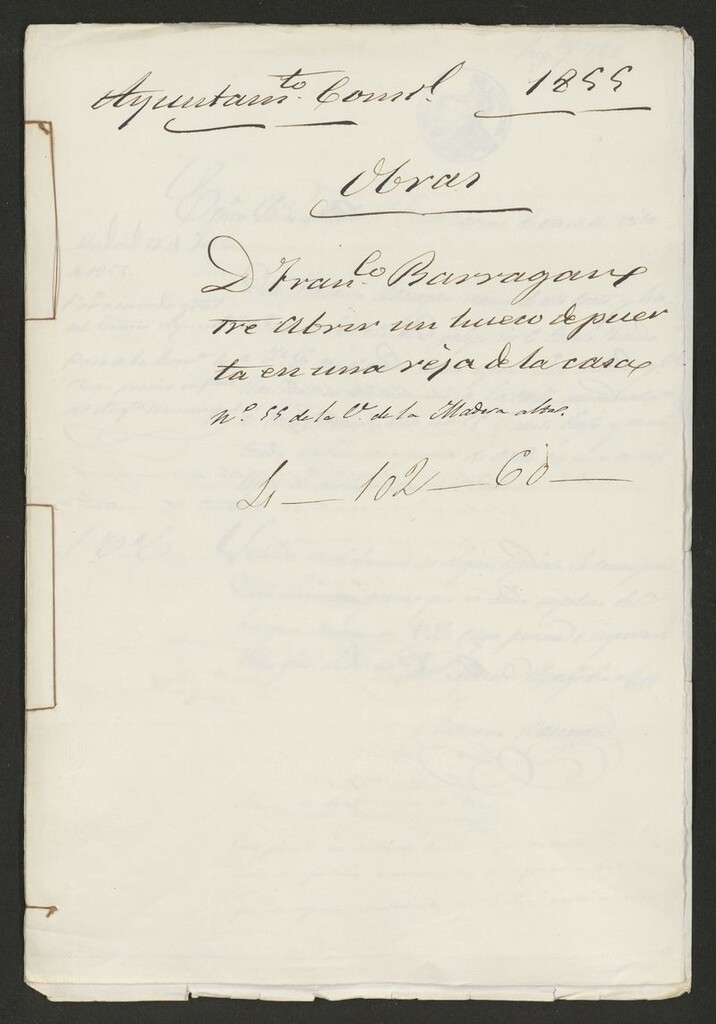 Ayuntam.to Const.l 1855
Obras
D Fran.co Barragan
tre Abrir un hueco de puer
ta en una reja de la casa
n.o 55 de la C.e de la Madera alta.
L — 102 — 60 —